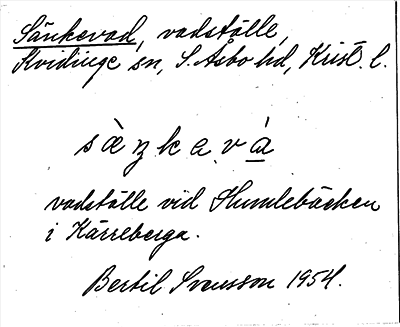 Sänkevad, vadställe,
Kvidinge sn, S. Åsbo hd, Krist. l.
sàŋkavá
vadställe vid Humlebäcken
i Kärreberga.
Bertil Svensson 1954.